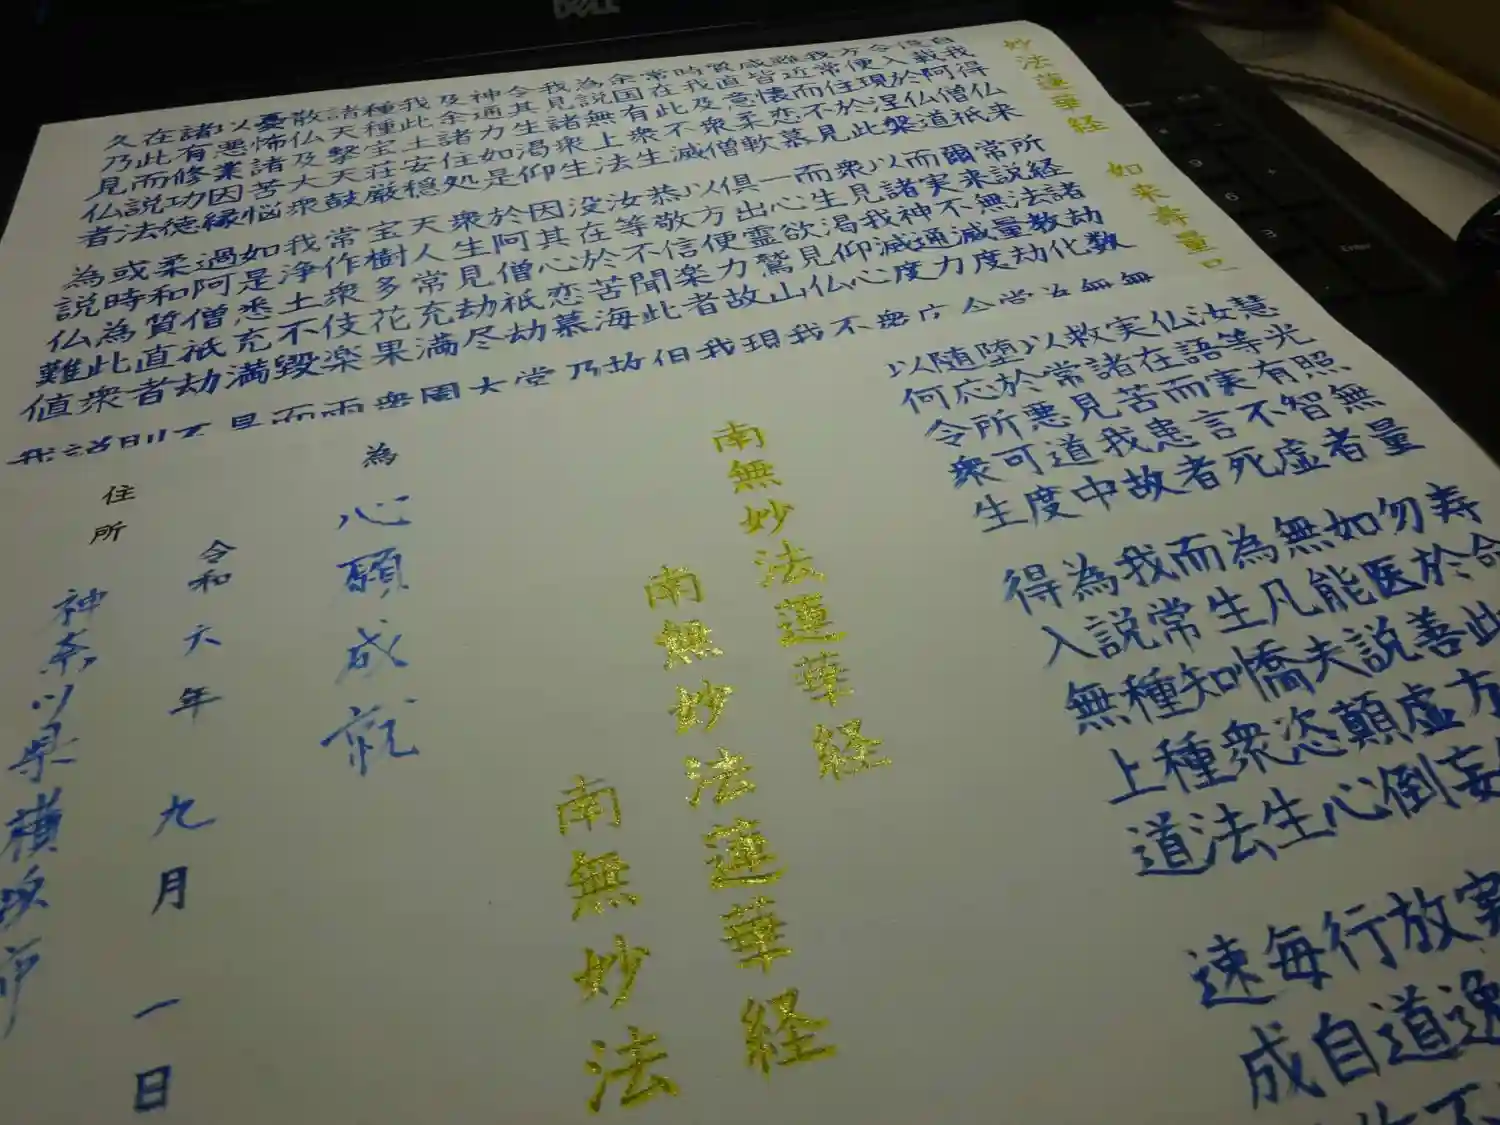 妙法蓮華経 如来壽量
自我得仏来
億載阿僧祇
令入於仏道
方便現涅槃
我常住於此
難近而不見
咸皆懐恋慕
質直意柔軟
時我及衆僧
常在此不滅
余国有衆生
為説無上法
我見諸衆生
令其生渇仰
神通力如是
及余諸住処
我此土安穏
種種宝荘厳
諸天撃天鼓
散仏及大衆
憂怖諸苦悩
以悪業因縁
諸有修功徳
在此而説法
久乃見仏者
所経諸劫数
常説法教化
爾来無量劫
而実不減度
以諸神通力
衆見我滅度
而生渇仰心
一心欲見仏
俱出霊鷲山
以方便力故
恭敬信楽者
汝等不聞此
没在於苦海
因其心恋慕
於阿僧祇劫
衆生見劫尽
天人常充満
宝樹多花果
常作衆伎楽
我浄土不毀
如是悉充満
過阿僧祇劫
柔和質直者
或時為此衆
為説仏難値
慧光照無量
汝等有智者
仏語実不虚
実在而言死
救諸苦患者
以常見我故
堕於悪道中
随応所可度
以何令衆生
寿命
勿於此
如医善方
無能説虚妄
為凡夫顛倒
而生憍恣心
我常知衆生
為説種種法
得入無上道
放逸
行道不
毎自作
速成
南無妙法蓮華経
南無妙法蓮華経
南無妙法
為 心願成就
令和六年 九月 一日
住所 神奈以県横浜市